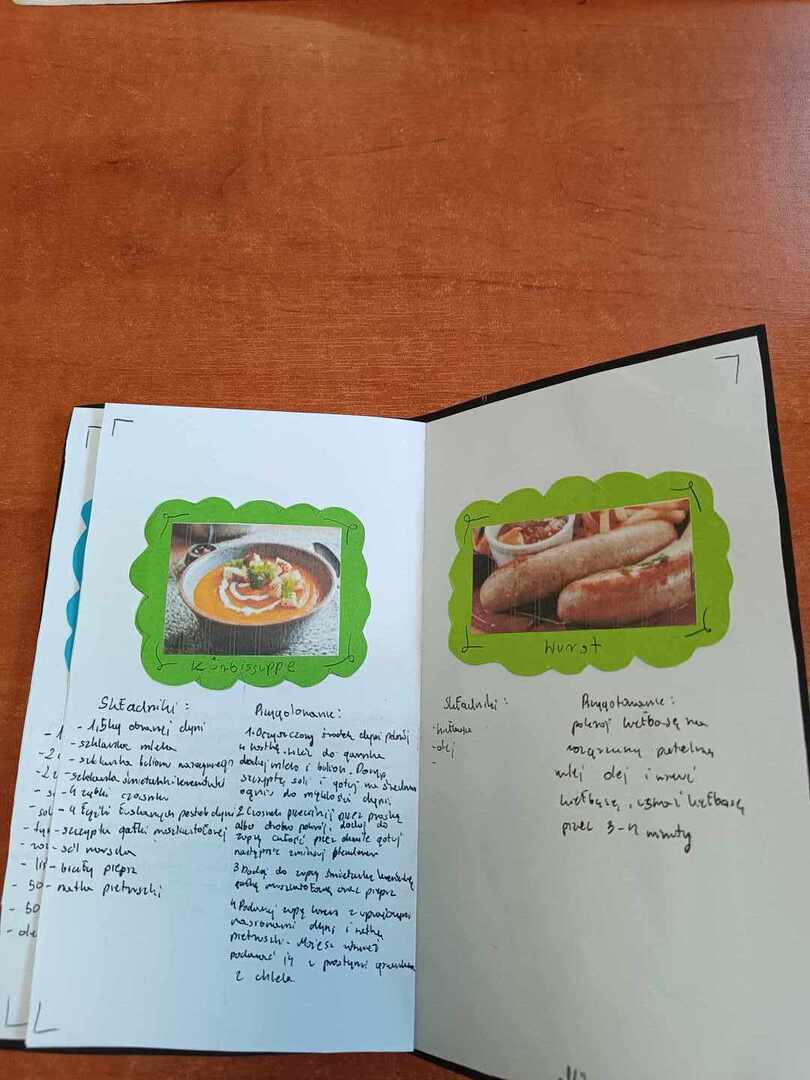 Kürbissuppe
Składniki:
- 1,5kg obranej dyni
- szklanka mleka
- szklanka bulionu warzywnego
- szklanka śmietanki kremówki
- 4 ząbki czosnku
- 4 łyżki łuskanych pestek dyni
- szczypta gałki muszkatołowej
- sól morska
- biały pieprz
- natka pietruszki
Przygotowanie:
1. Oczyszczony środek dyni pokrój
w kostkę. Włóż do garnka
dodaj mleko i bulion. Dodaj
szczyptę soli i gotuj na średnim
ogniu do miękkości dyni.
2. Czosnek przeciśnij przez praskę
albo drobno pokrój, dodaj do
zupy całość przez gotuj
następnie zmiksuj blenderem
3. Dodaj do zupy śmietankę kremówkę
gałkę muszkatołową oraz pieprz
4. Podawaj zupę wraz z uprażonymi
nasionami dyni i natką
pietruszki. Możesz również
podawać ją z prostymi grzankami
z chleba
Wurst
Składniki:
- kiełbasa
- olej
-
Przygotowanie:
pokrój kiełbasę na
rozgrzaną patelnię
wlej olej i wrzuć
kiełbasę, smaż kiełbasę
przez 3-4 minuty
- 1
- 2
- 2
- s
- sol
- łyż
- li
- 50
- 50
- ole